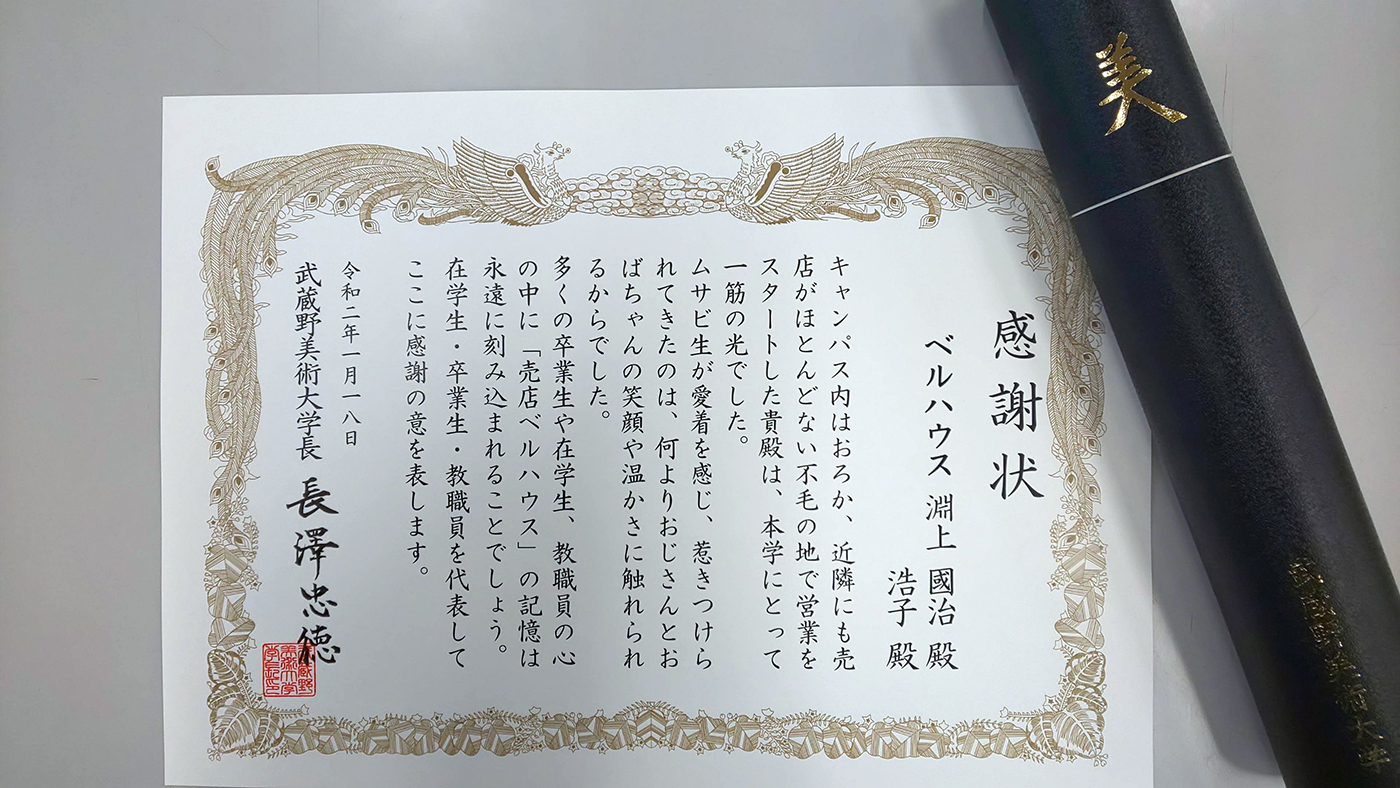 感謝状
ベルハウス 淵上 國治 殿
浩子 殿
キャンパス内はおろか、近隣にも売
店がほとんどない不毛の地で営業を
スタートした貴殿は、本学にとって
一筋の光でした。
ムサビ生が愛着を感じ、惹きつけら
れてきたのは、何よりおじさんとお
ばちゃんの笑顔や温かさに触れられ
るからでした。
多くの卒業生や在学生、教職員の心
の中に「売店ベルハウス」の記憶は
永遠に刻み込まれることでしょう。
在学生・卒業生・教職員を代表して
ここに感謝の意を表します。
令和二年一月一八日
武蔵野美術大学長 長澤忠徳
武蔵野
美術大学
学長之印
美
武蔵野美術大学